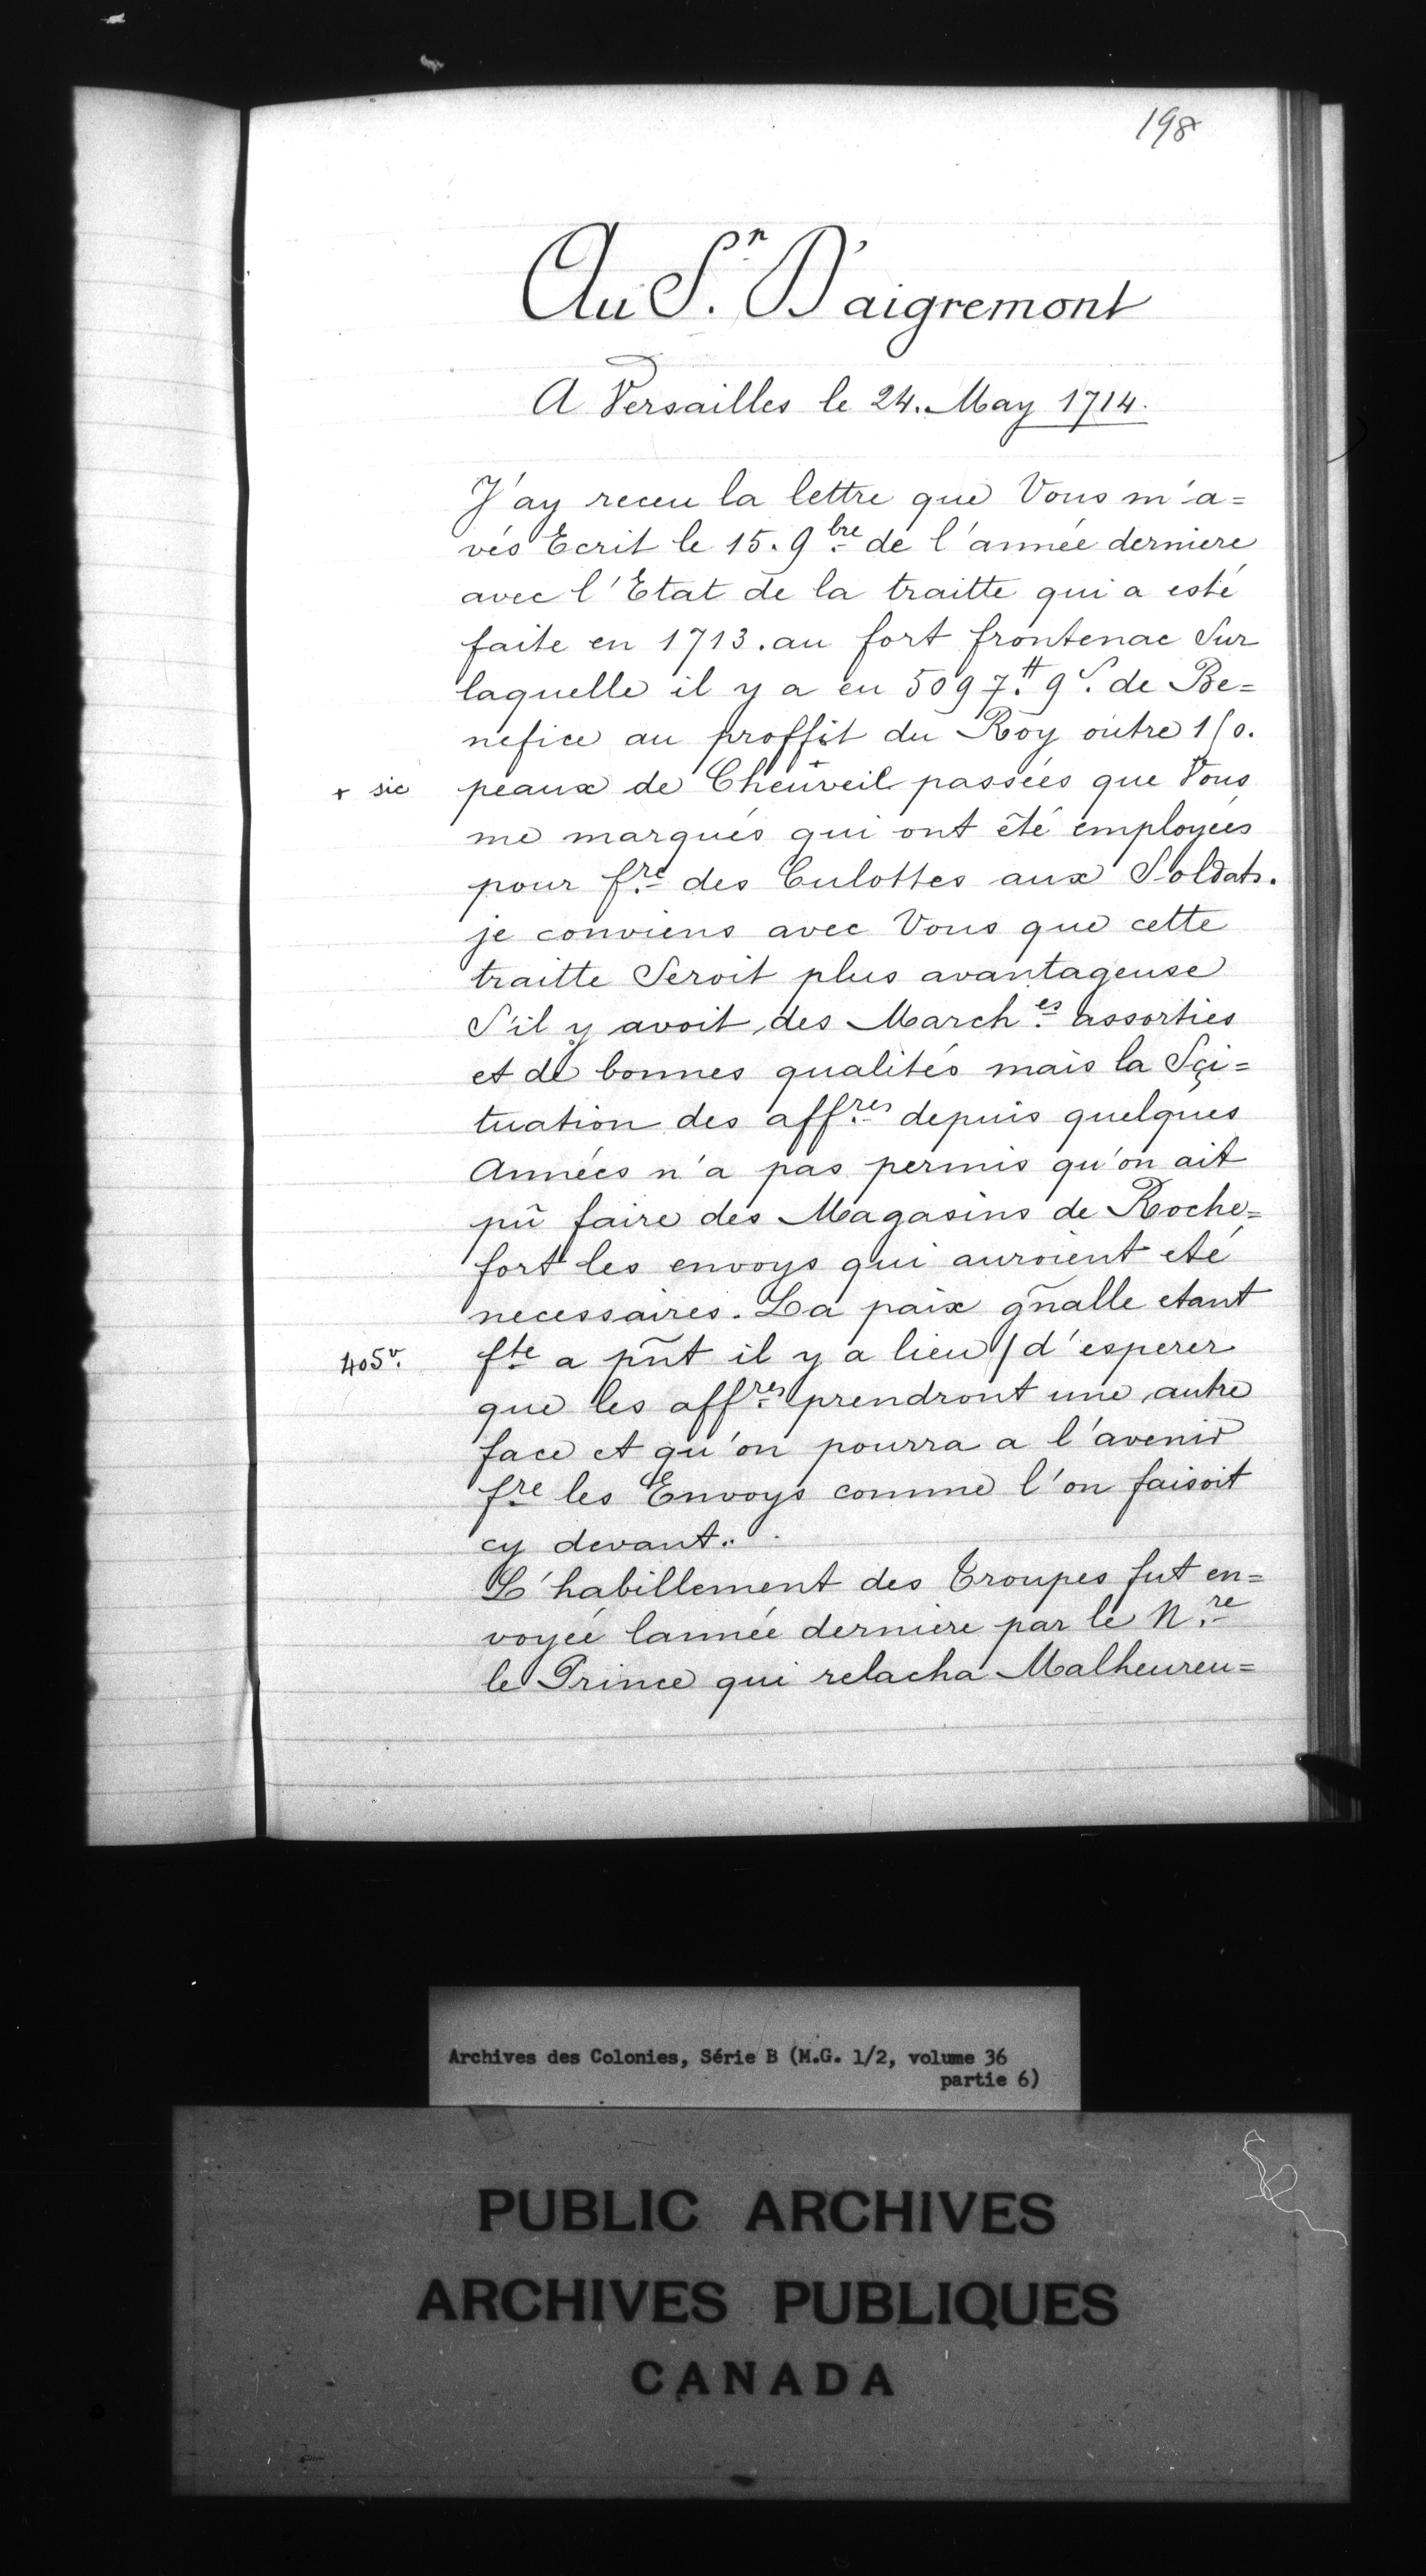 198
Au S.r D'aigremont
A Versailles le 24. May 1714.
J'ay receu la lettre que Vous m'a=
vés Ecrit le 15. 9bre de l'année derniere
avec l'Etat de la traitte qui a esté
faite en 1713. au fort frontenac Sur
laquelle il y a eu 5097.tt 9s. de Be=
nefice au proffit du Roy outre 150.
+ sic peaux de Cheuveil+ passées que Vous
me marqués qui ont êté employées
pour f.re des Culottes aux Soldats.
je conviens avec Vous que cette
traitte Seroit plus avantageuse
S'il y avoit des March.es assorties
et de bonnes qualités mais la Sçi=
tuation des aff.res depuis quelques
Années n'a pas permis qu'on ait
pû faire des Magasins de Roche=
fort les envoys qui auroient eté
necessaires. La paix gñalle etant
405v. fte a pñt il y a lieu / d'esperer
que les aff.res prendront une autre
face et qu'on pourra a l'avenir
fre les Envoys comme l'on faisoit
cy devant..
L'habillement des Troupes fut en=
voyée lannée derniere par le N.re
le Prince qui relacha Malheureu=
Archives des Colonies, Série B (M.G. 1/2, volume 36
partie 6)
PUBLIC ARCHIVES
ARCHIVES PUBLIQUES
CANADA